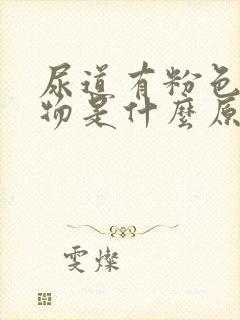 尿道有粉色
物是什麼原
雯燦